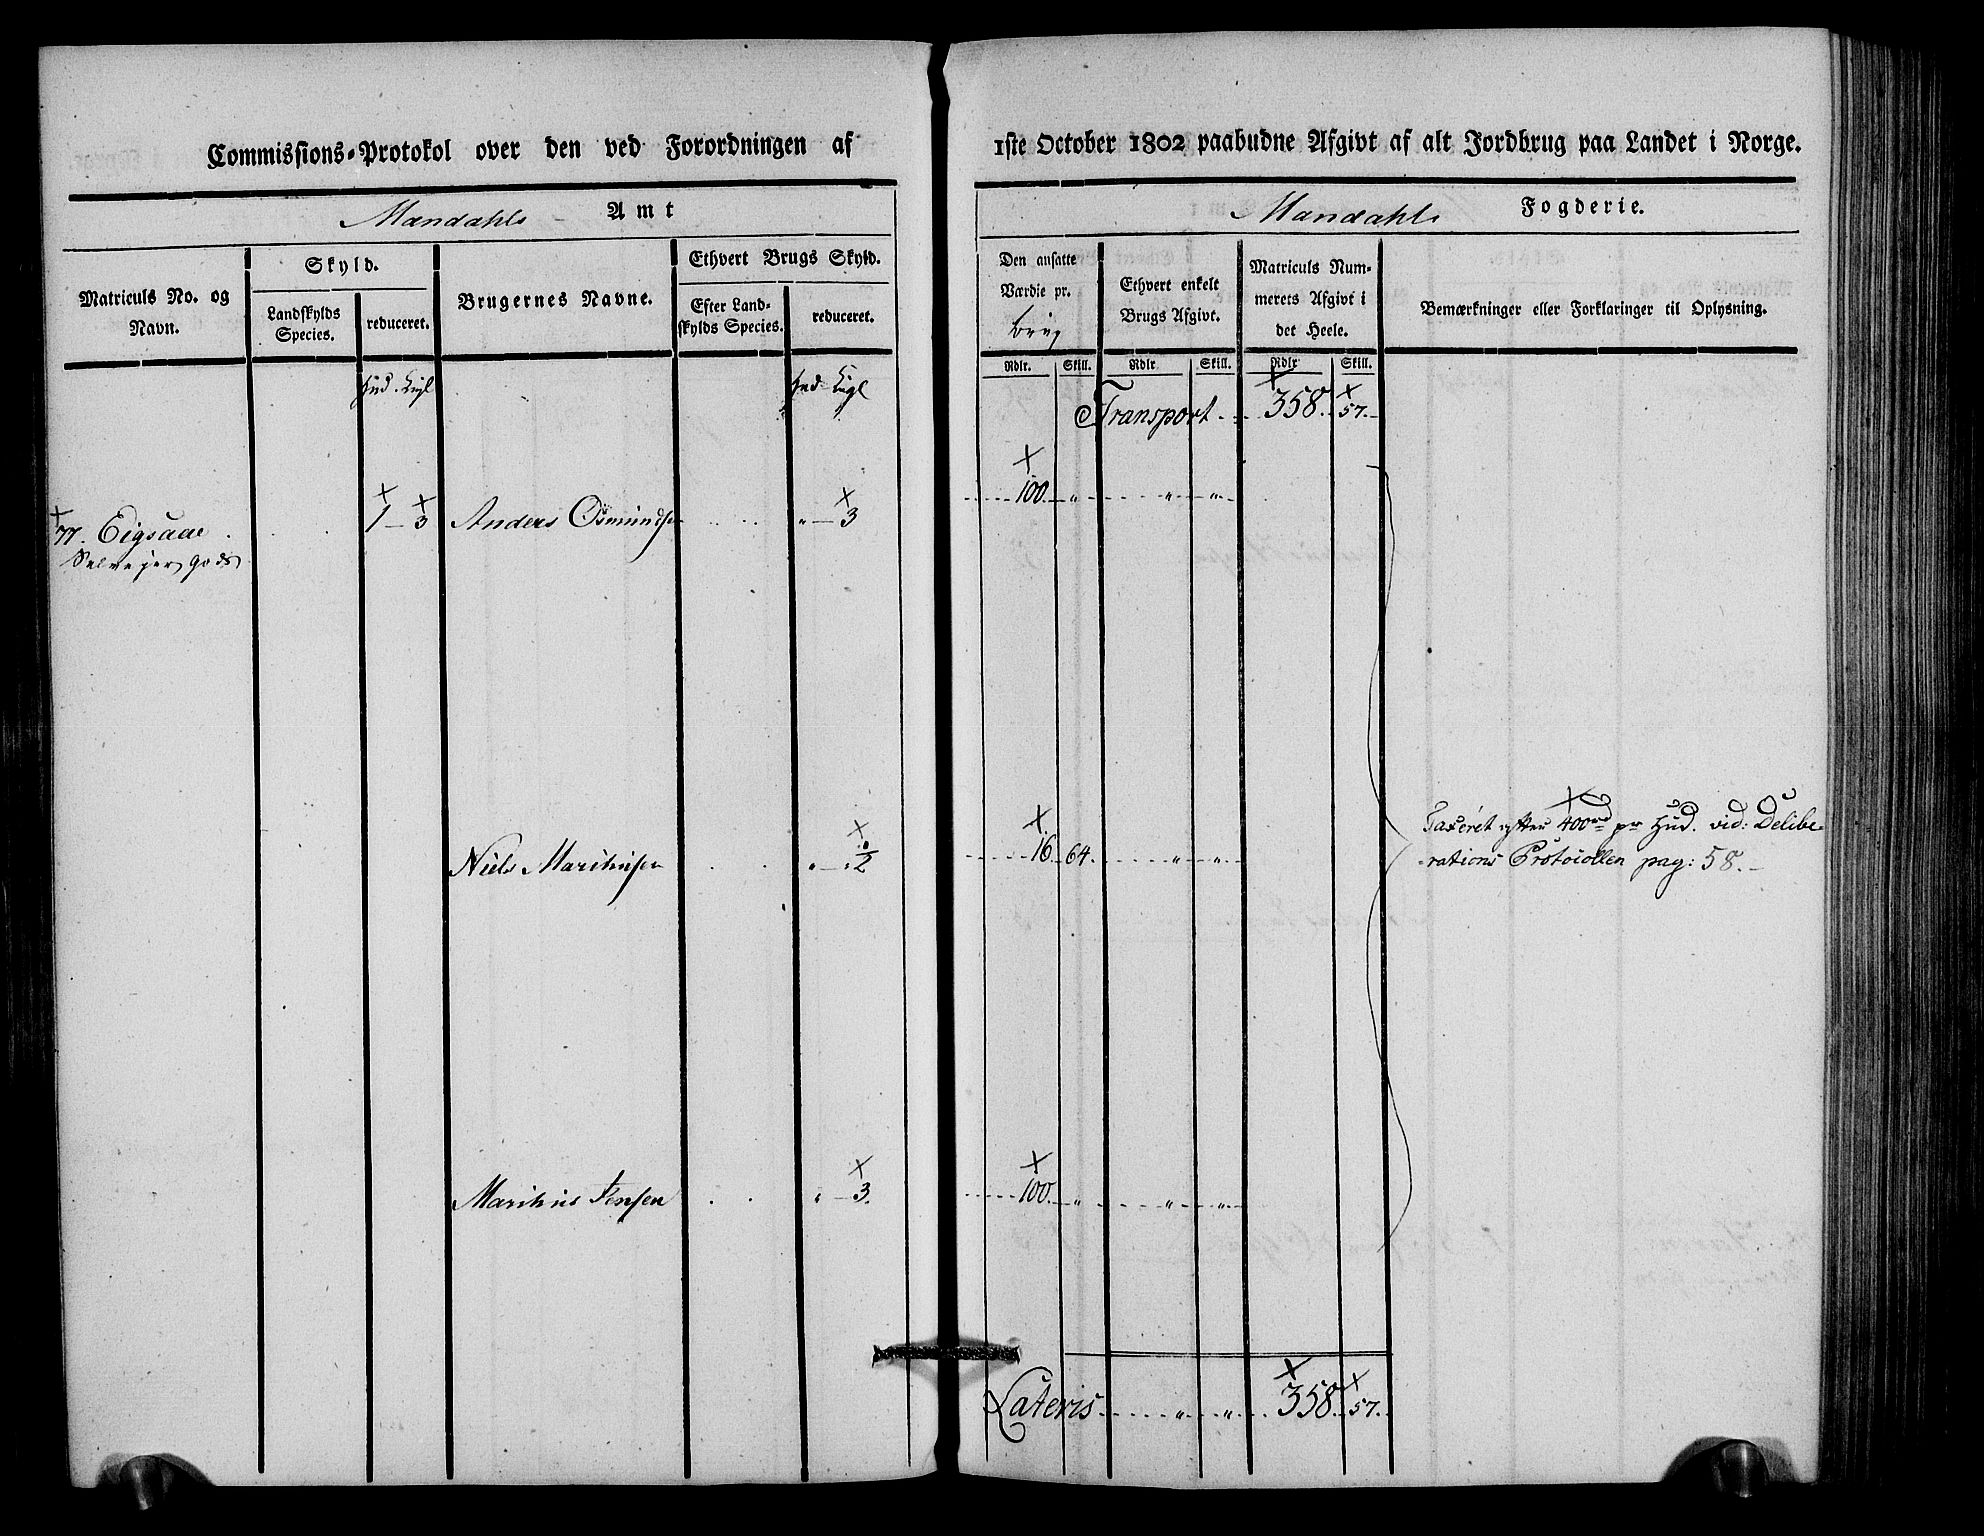 Commissions-Protokol over den ved Forordningen af 1ste October 1802 paabudne Afgivt af alt Jordbrug paa Landet i Norge.
Mandahls Amt
Mandahls Fogderie.
Matriculs No. og Navn.
Skyld.
Landskylds Species.
reduceret.
Brugernes Navne.
Ethvert Brugs Skyld.
Efter Landskylds Species.
reduceret.
Den ansatte Værdie pr. brug
Ethvert enkelt Brugs Afgivt.
Matriculs Nummerets Afgivt i det Heele.
Bemærkninger eller Forklaringer til Oplysning.
Rdlr. Skill. Rdlr. Skill. Rdlr. Skill.
Hud. Kugl
Hud. Kugl
Transport 358. 57.
77. Eigsaae 1 - 3 Anders Osmundsen " - 3 100 " " "
Selveyer Gods
Niels Marthinsen " - 1/2 16 64 " "
Taxeret efter 400rd pr Hud. vid: Delibe-
rations Protocollen pag: 58.
Marthin Jensen " - 3 100 " " "
Lateris " " 358. 57.